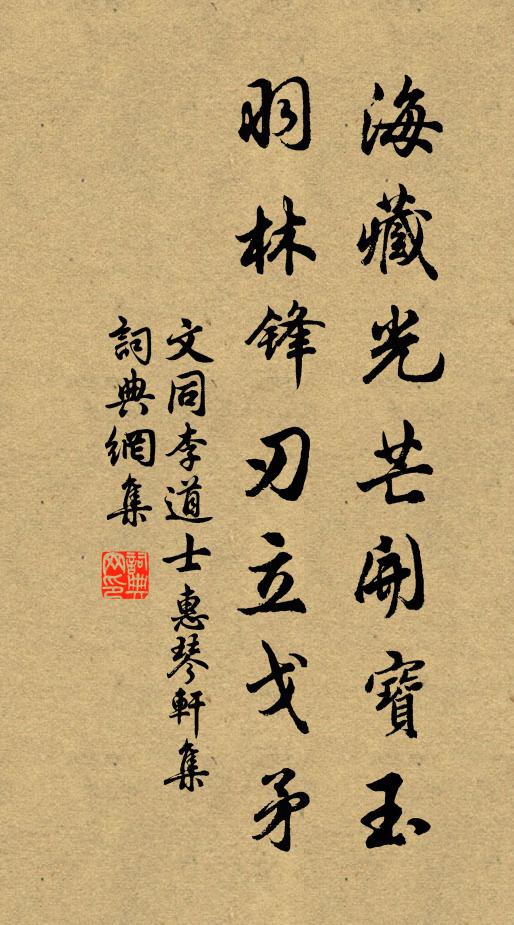 海藏光芒開寶玉
羽林鋒刃立戈矛
文同李道士惠琴軒集
詞典網集
詞典
网印